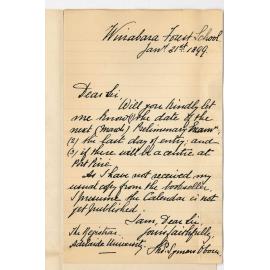 Wirrabara Forest School
Jany 31st 1899.
Dear Sir,
Will you kindly let
me know (1) the date of the
next (March) Preliminary Exam,
(2) the last day of entry, and
(3) if there will be a centre at
Port Pirie.
As I have not received my
usual copy from the bookseller,
I presume the Calendar is not
yet published.
I am, Dear Sir,
Yours faithfully,
The Registrar,
Adelaide University.